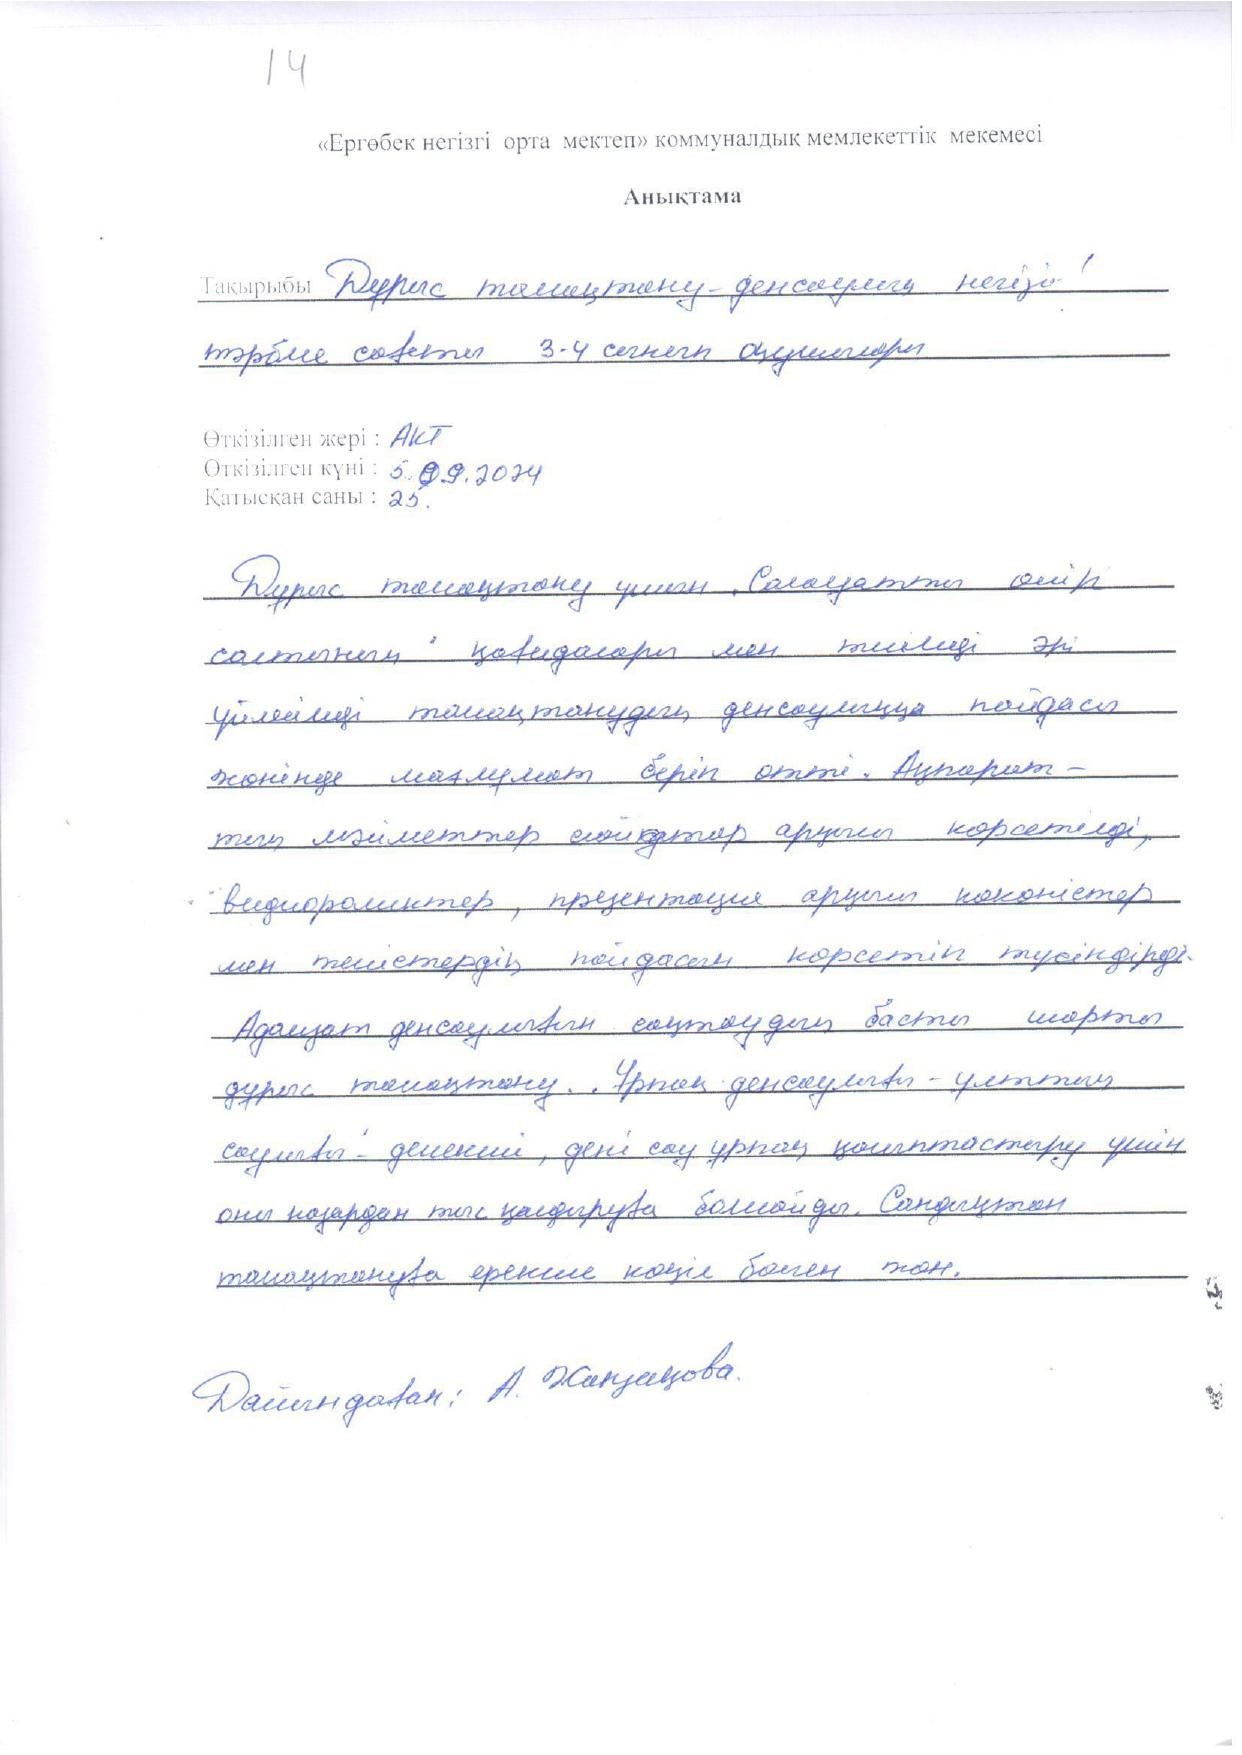 14
«Ергөбек негізгі орта мектеп» коммуналдық мемлекеттік мекемесі
Анықтама
Тақырыбы Дұрыс тамақтану - денсаулық негізі!
тәрбие сағаты 3-4 сынып оқушылары
Өткізілген жері : АКТ
Өткізілген күні : 5.09.2024
Қатысқан саны : 25.
Дұрыс тамақтану үшін „Салауатты өмір
салтының" қағидалары мен тиімді әрі
үйлесімді тамақтанудың денсаулыққа пайдасы
жөнінде мағлұмат беріп өтті. Ақпарат-
тық мәліметтер слайдтар арқылы көрсетілді,
видиороликтер, презентация арқылы көкөністер
мен жемістердің пайдасын көрсетіп түсіндірді.
Адамзат денсаулығын сақтаудың басты шарты
дұрыс тамақтану. „Ұрпақ денсаулығы - ұлттың
саулығы" - демекші, дені сау ұрпақ қалыптастыру үшін
оны назардан тыс қалдыруға болмайды. Сондықтан
тамақтануға ерекше көңіл бөлген жөн.
Дайындаған: А. Жанзақова.